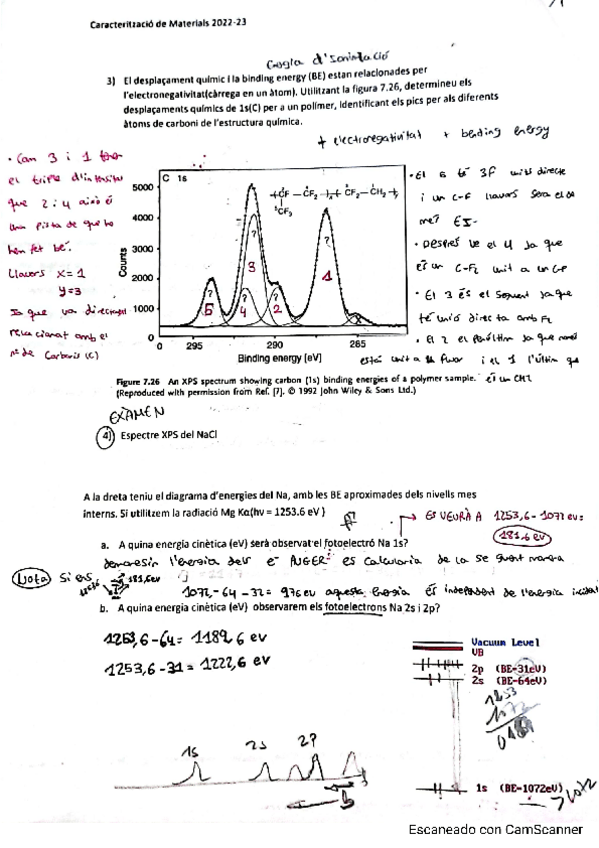 Caracterització de Materials 2022-23
Energia d'Ionització
3) El desplaçament químic i la binding energy (BE) estan relacionades per
l'electronegativitat(càrrega en un àtom). Utilitzant la figura 7.26, determineu els
desplaçaments químics de 1s(C) per a un polímer, identificant els pics per als diferents
àtoms de carboni de l'estructura química.
+ electronegativitat + bending energy
• Com 3 i 1
el triple d'intensitat
que 2 i 4 això é
una pista de que ho
hem fet bé.
Llavors x=1
y=3
Ja que va directament
relacionat amb el
nº de Carbonis (C)
C 1s
5000
4000
3000
2000
1000
0
Counts
5 3 4 2 1
295 290 285
0
Binding energy (eV)
• El 5 té 3F units directe
i un C-F llavors sera el de
més EI-
• Després ve el 4 ja que
és un C-F₂ unit a un CF
• El 3 és el següent ja que
té unió directa amb F₂
• El 2 el penúltim ja que només
està unit a un fluor i el 1 l'últim que
és un CH2
Figure 7.26 An XPS spectrum showing carbon (1s) binding energies of a polymer sample.
(Reproduced with permission from Ref. [7]. © 1992 John Wiley & Sons Ltd.)
EXAMEN
4) Espectre XPS del NaCl
A la dreta teniu el diagrama d'energies del Na, amb les BE aproximades dels nivells mes
interns. Si utilitzem la radiació Mg Kα(hv = 1253.6 eV )
→ ES VEURÀ A 1253,6-1072 eV=
181.6 eV
a. A quina energia cinètica (eV) serà observat el fotoelectró Na 1s?
Nota Si ens demanessin l'energia dels e⁻ AUGER es calcularia de la següent manera
181,6eV
1072-64-32= 976 eV aquesta energia és independent de l'energia incident
b. A quina energia cinètica (eV) observarem els fotoelectrons Na 2s i 2p?
1253,6-64= 1189,6 eV
1253,6-31= 1222,6 eV
Vacuum Level
VB
2p (BE-31eV)
2s (BE-64eV)
1253
1072
1s 2s 2p
1s (BE-1072eV)
Escaneado con CamScanner